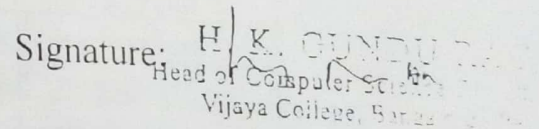 Signature: H. K. GUNDU
Head of Computer
Vijaya College,